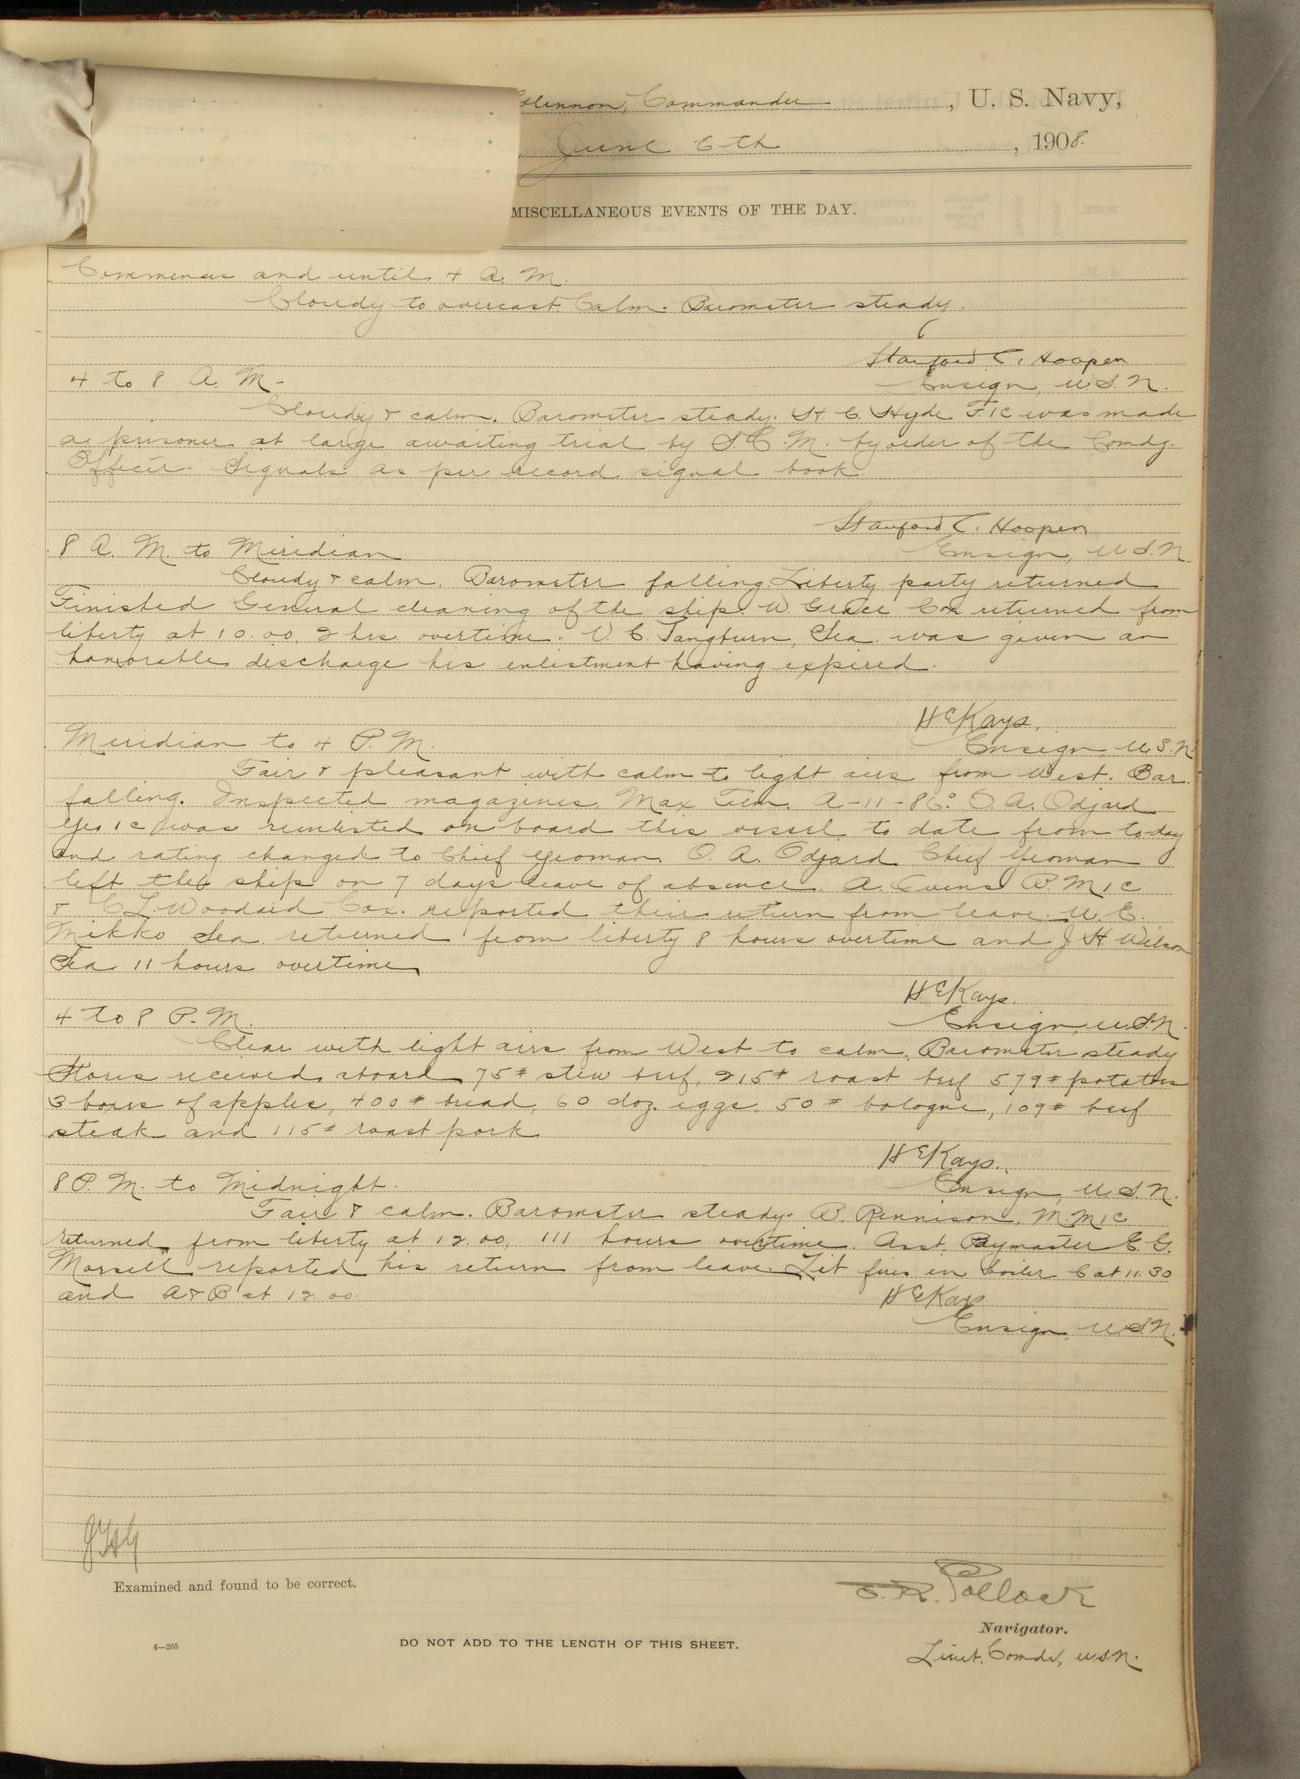 Commander, U. S. Navy,
June 6th, 1908.
MISCELLANEOUS EVENTS OF THE DAY.
Commences and until 4 A. M.
Cloudy to overcast. Calm. Barometer steady.
Stanford C. Hooper
Ensign, U.S.N.
4 to 8 A. M.
Cloudy & calm. Barometer steady. H C. Hyde F1C was made
a prisoner at large awaiting trial by S.C.M. by order of the Comdg.
Officer. Signals as per record signal book.
Stanford C. Hooper
Ensign, U.S.N.
8 A. M. to Meridian
Cloudy & calm. Barometer falling. Liberty party returned
Finished General cleaning of the ship. W. Grace Cox returned from
liberty at 10.00, 2 hrs. overtime. V. C. Tangburn, Sea. was given an
honorable discharge his enlistment having expired.
H E Kays.
Ensign U.S.N.
Meridian to 4 P. M.
Fair & pleasant with calm to light airs from West. Bar.
falling. Inspected magazines. Max Tem. A-11-86° O. A. Odjard
Yeo 1c was reenlisted on board this vessel to date from to-day
and rating changed to Chief Yeoman. O. A. Odjard Chief Yeoman
left the ship on 7 days leave of absence. A. Evens B.M1C
& C L. Woodard Cox. reported their return from leave. U. E.
Mikko Sea. returned from liberty 8 hours overtime and J H Wilson
Sea 11 hours overtime.
H E Kays.
Ensign, U.S.N.
4 to 8 P. M.
Clear with light airs from West to calm. Barometer steady
Stores received aboard 75# stew beef, 215# roast beef 579# potatoes
3 boxes of apples, 400# bread, 60 doz. eggs, 50# bologna, 109# beef
steak and 115# roast pork
H E Kays.
Ensign, U.S.N.
8 P. M. to Midnight.
Fair & calm. Barometer steady. B. Rennison, M.M1C
returned from liberty at 12.00, 111 hours overtime. Asst. Paymaster E. G.
Morsell reported his return from leave. Lit fires in boiler C at 11.30
and A & B at 12.00.
H E Kays
Ensign, U.S.N.
Examined and found to be correct.
E. R. Pollock
Navigator.
4—265
DO NOT ADD TO THE LENGTH OF THIS SHEET.
Lieut. Comdr, U.S.N.